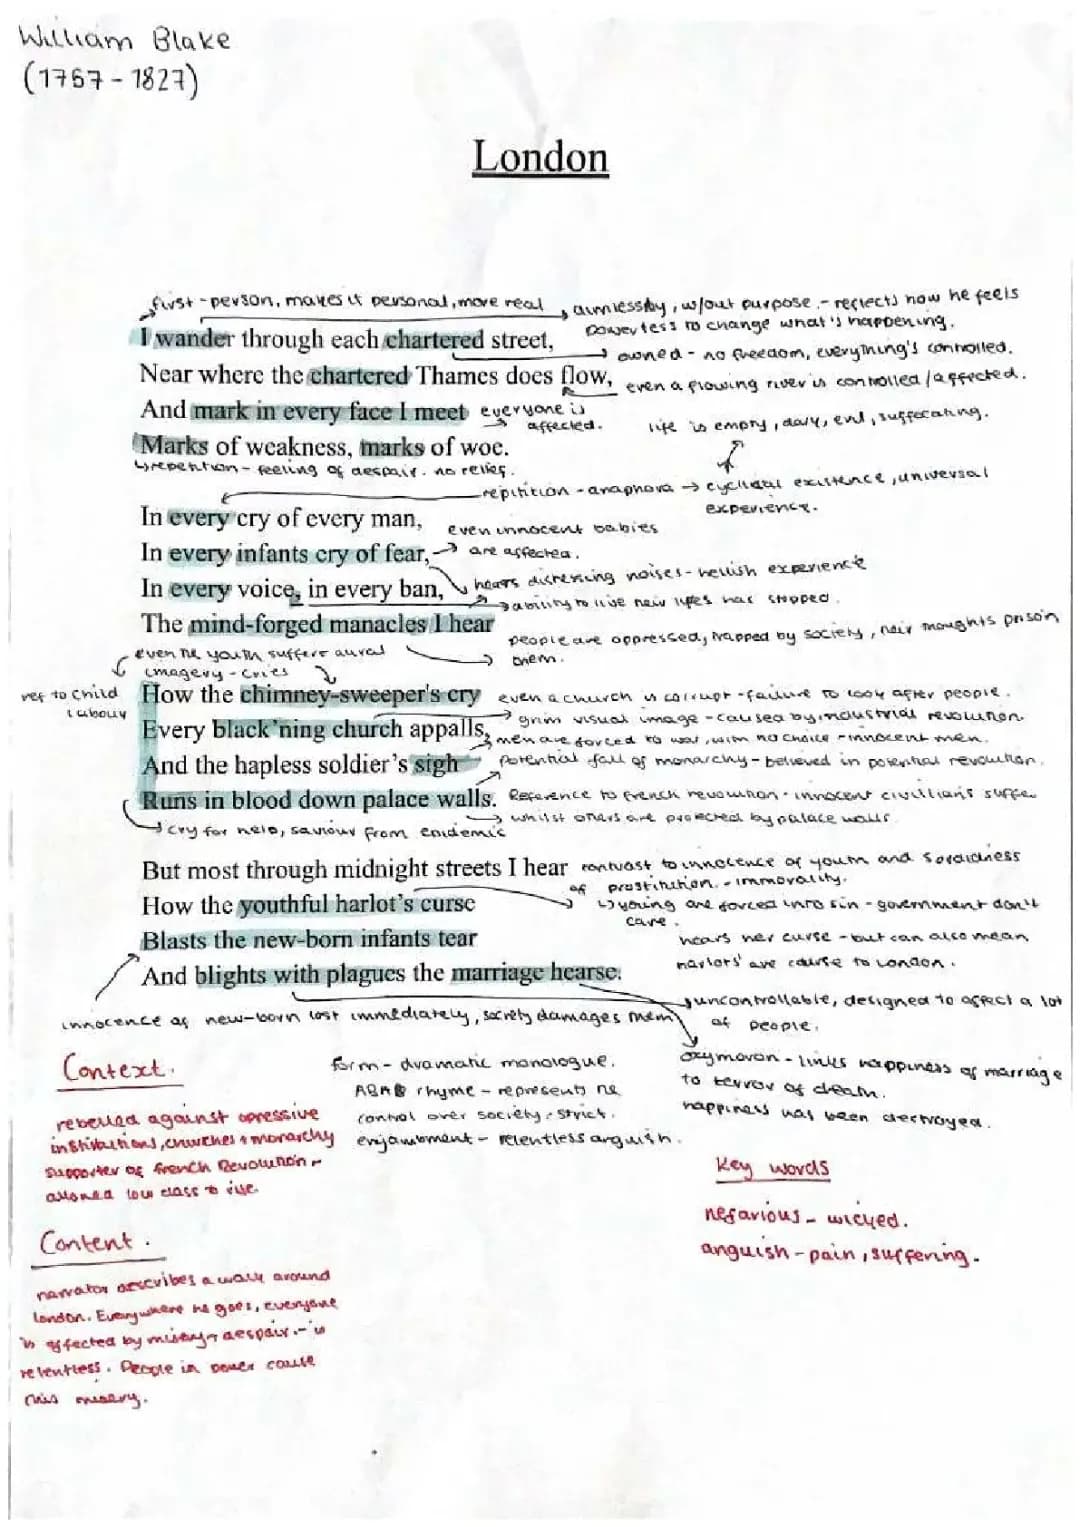 William Blake
(1757 - 1827)
London
first-person, makes it personal, more real
aimlessly, w/out purpose - reflects how he feels
powerless to change what's happening.
I wander through each chartered street,
owned - no freedom, everything's controlled.
Near where the chartered Thames does flow,
even a flowing river is controlled/affected.
And mark in every face I meet
everyone is
affected.
life is empty, dark, evil, suffocating.
Marks of weakness, marks of woe.
repetition - feeling of despair. no relief.
repitition - anaphora → cyclical existence, universal
experience.
In every cry of every man,
even innocent babies
In every infants cry of fear,
are affected.
In every voice, in every ban,
hears distressing noises - hellish experience
ability to live new lifes has stopped
The mind-forged manacles I hear
people are oppressed, trapped by society, their thoughts prison
them.
even the youth suffers aural
imagery - cries
ref to child
labour
How the chimney-sweeper's cry
even a church is corrupt - failure to look after people.
grim visual image - caused by industrial revolution.
Every black'ning church appalls,
men are forced to war, with no choice - innocent men.
And the hapless soldier's sigh
potential fall of monarchy - believed in potential revolution.
Runs in blood down palace walls.
Reference to french revolution - innocent civillians suffer
whilst others are protected by palace walls
cry for help, saviour from endemic
But most through midnight streets I hear
contrast to innocence of youth and sordidness
of prostitution. - immorality.
How the youthful harlot's curse
young are forced into sin - government don't
care.
Blasts the new-born infants tear
hears her curse - but can also mean
harlots' are curse to London.
And blights with plagues the marriage hearse.
uncontrollable, designed to affect a lot
of people.
innocence of new-born lost immediately, society damages them
oxymoron - links happiness of marriage
to terror of death.
happiness has been destroyed.
Context.
rebelled against opressive
institutions, churches + monarchy
supporter of french Revolution -
allowed low class to rise
form - dramatic monologue.
ABAB rhyme - represents the
control over society - strict.
enjambment - relentless anguish.
Key words
nefarious - wicked.
anguish - pain, suffering.
Content.
narrator describes a walk around
london. Everywhere he goes, everyone
is affected by misery + despair. - is
relentless. People in power cause
this misery.